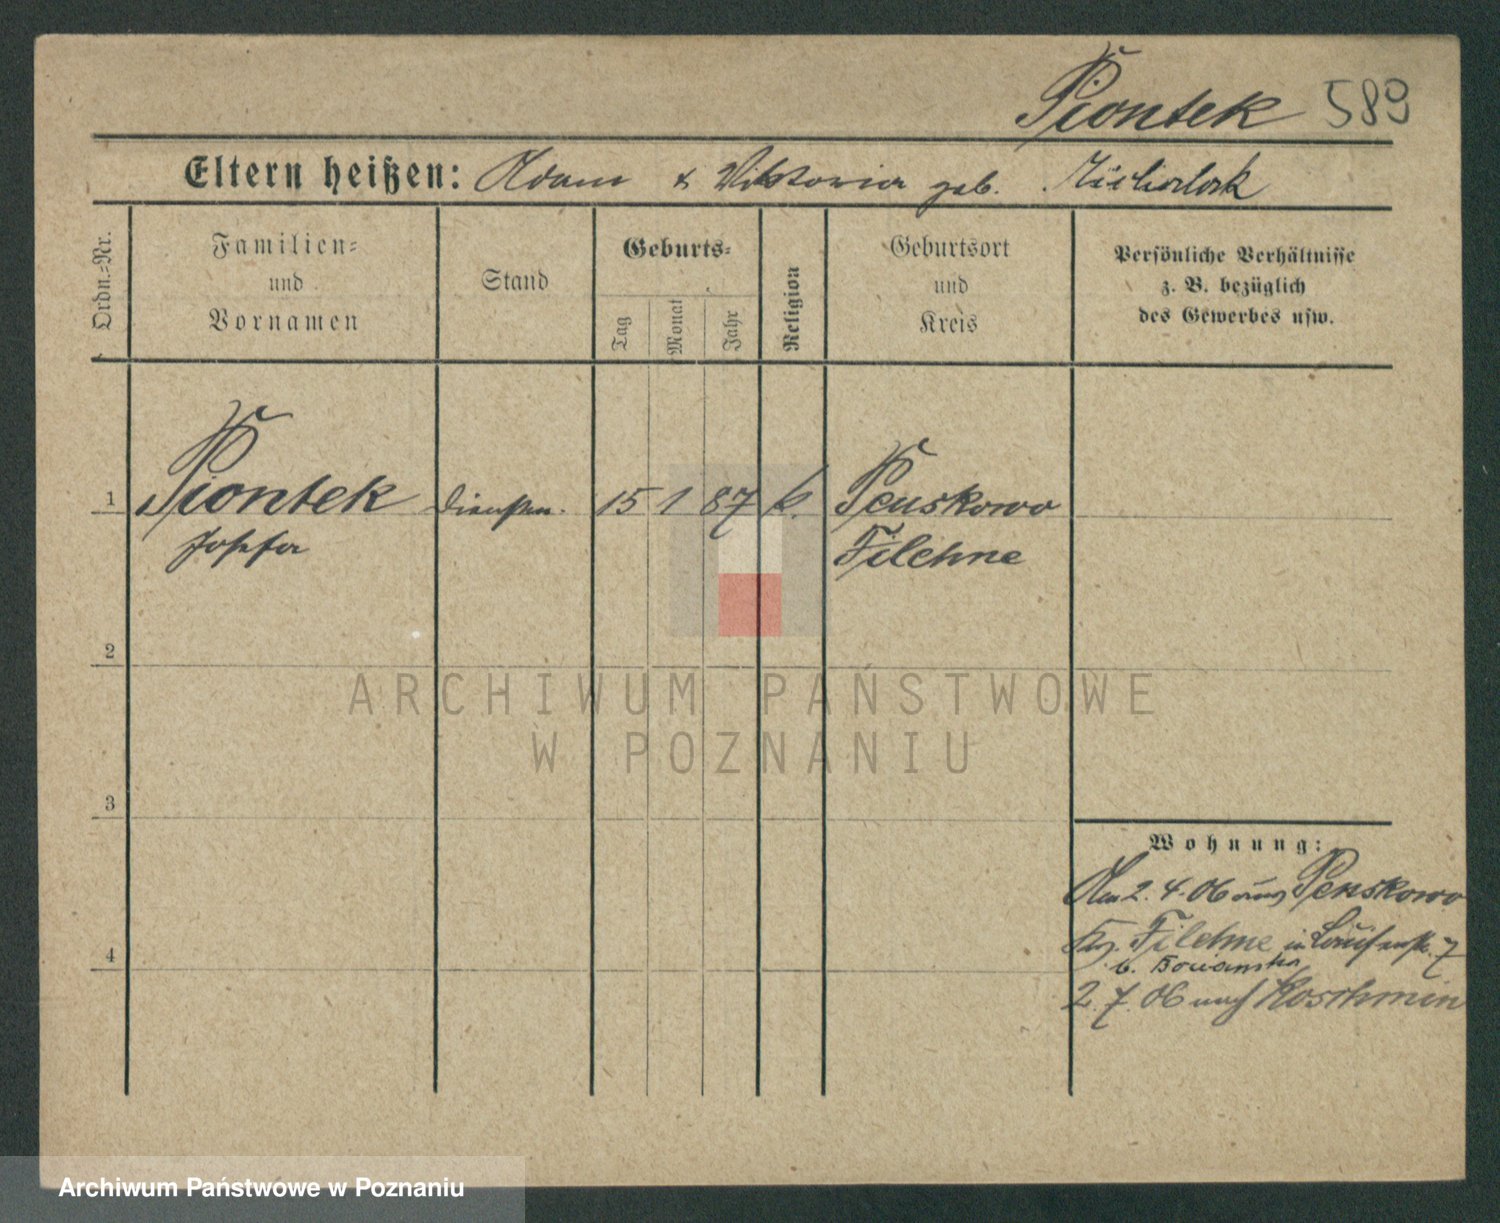 Piontek 589
Eltern heißen: Adam & Viktoria geb.
Ordn.=Nr.
Familien=
und
Vornamen
Stand
Geburts=
Tag
Monat
Jahr
Religion
Geburtsort
und
Kreis
Persönliche Verhältnisse
z. B. bezüglich
des Gewerbes usw.
1 Piontek Dienstm. 15 1 87 k. Penskowo
Josefa Filehne
2
3
4
Wohnung:
Am 2. 4. 06 aus Penskowo
Krs. Filehne in Louisenstr. 7
b.
2. 7. 06 nach Koschmin
ARCHIWUM PAŃSTWOWE
W POZNANIU
Archiwum Państwowe w Poznaniu